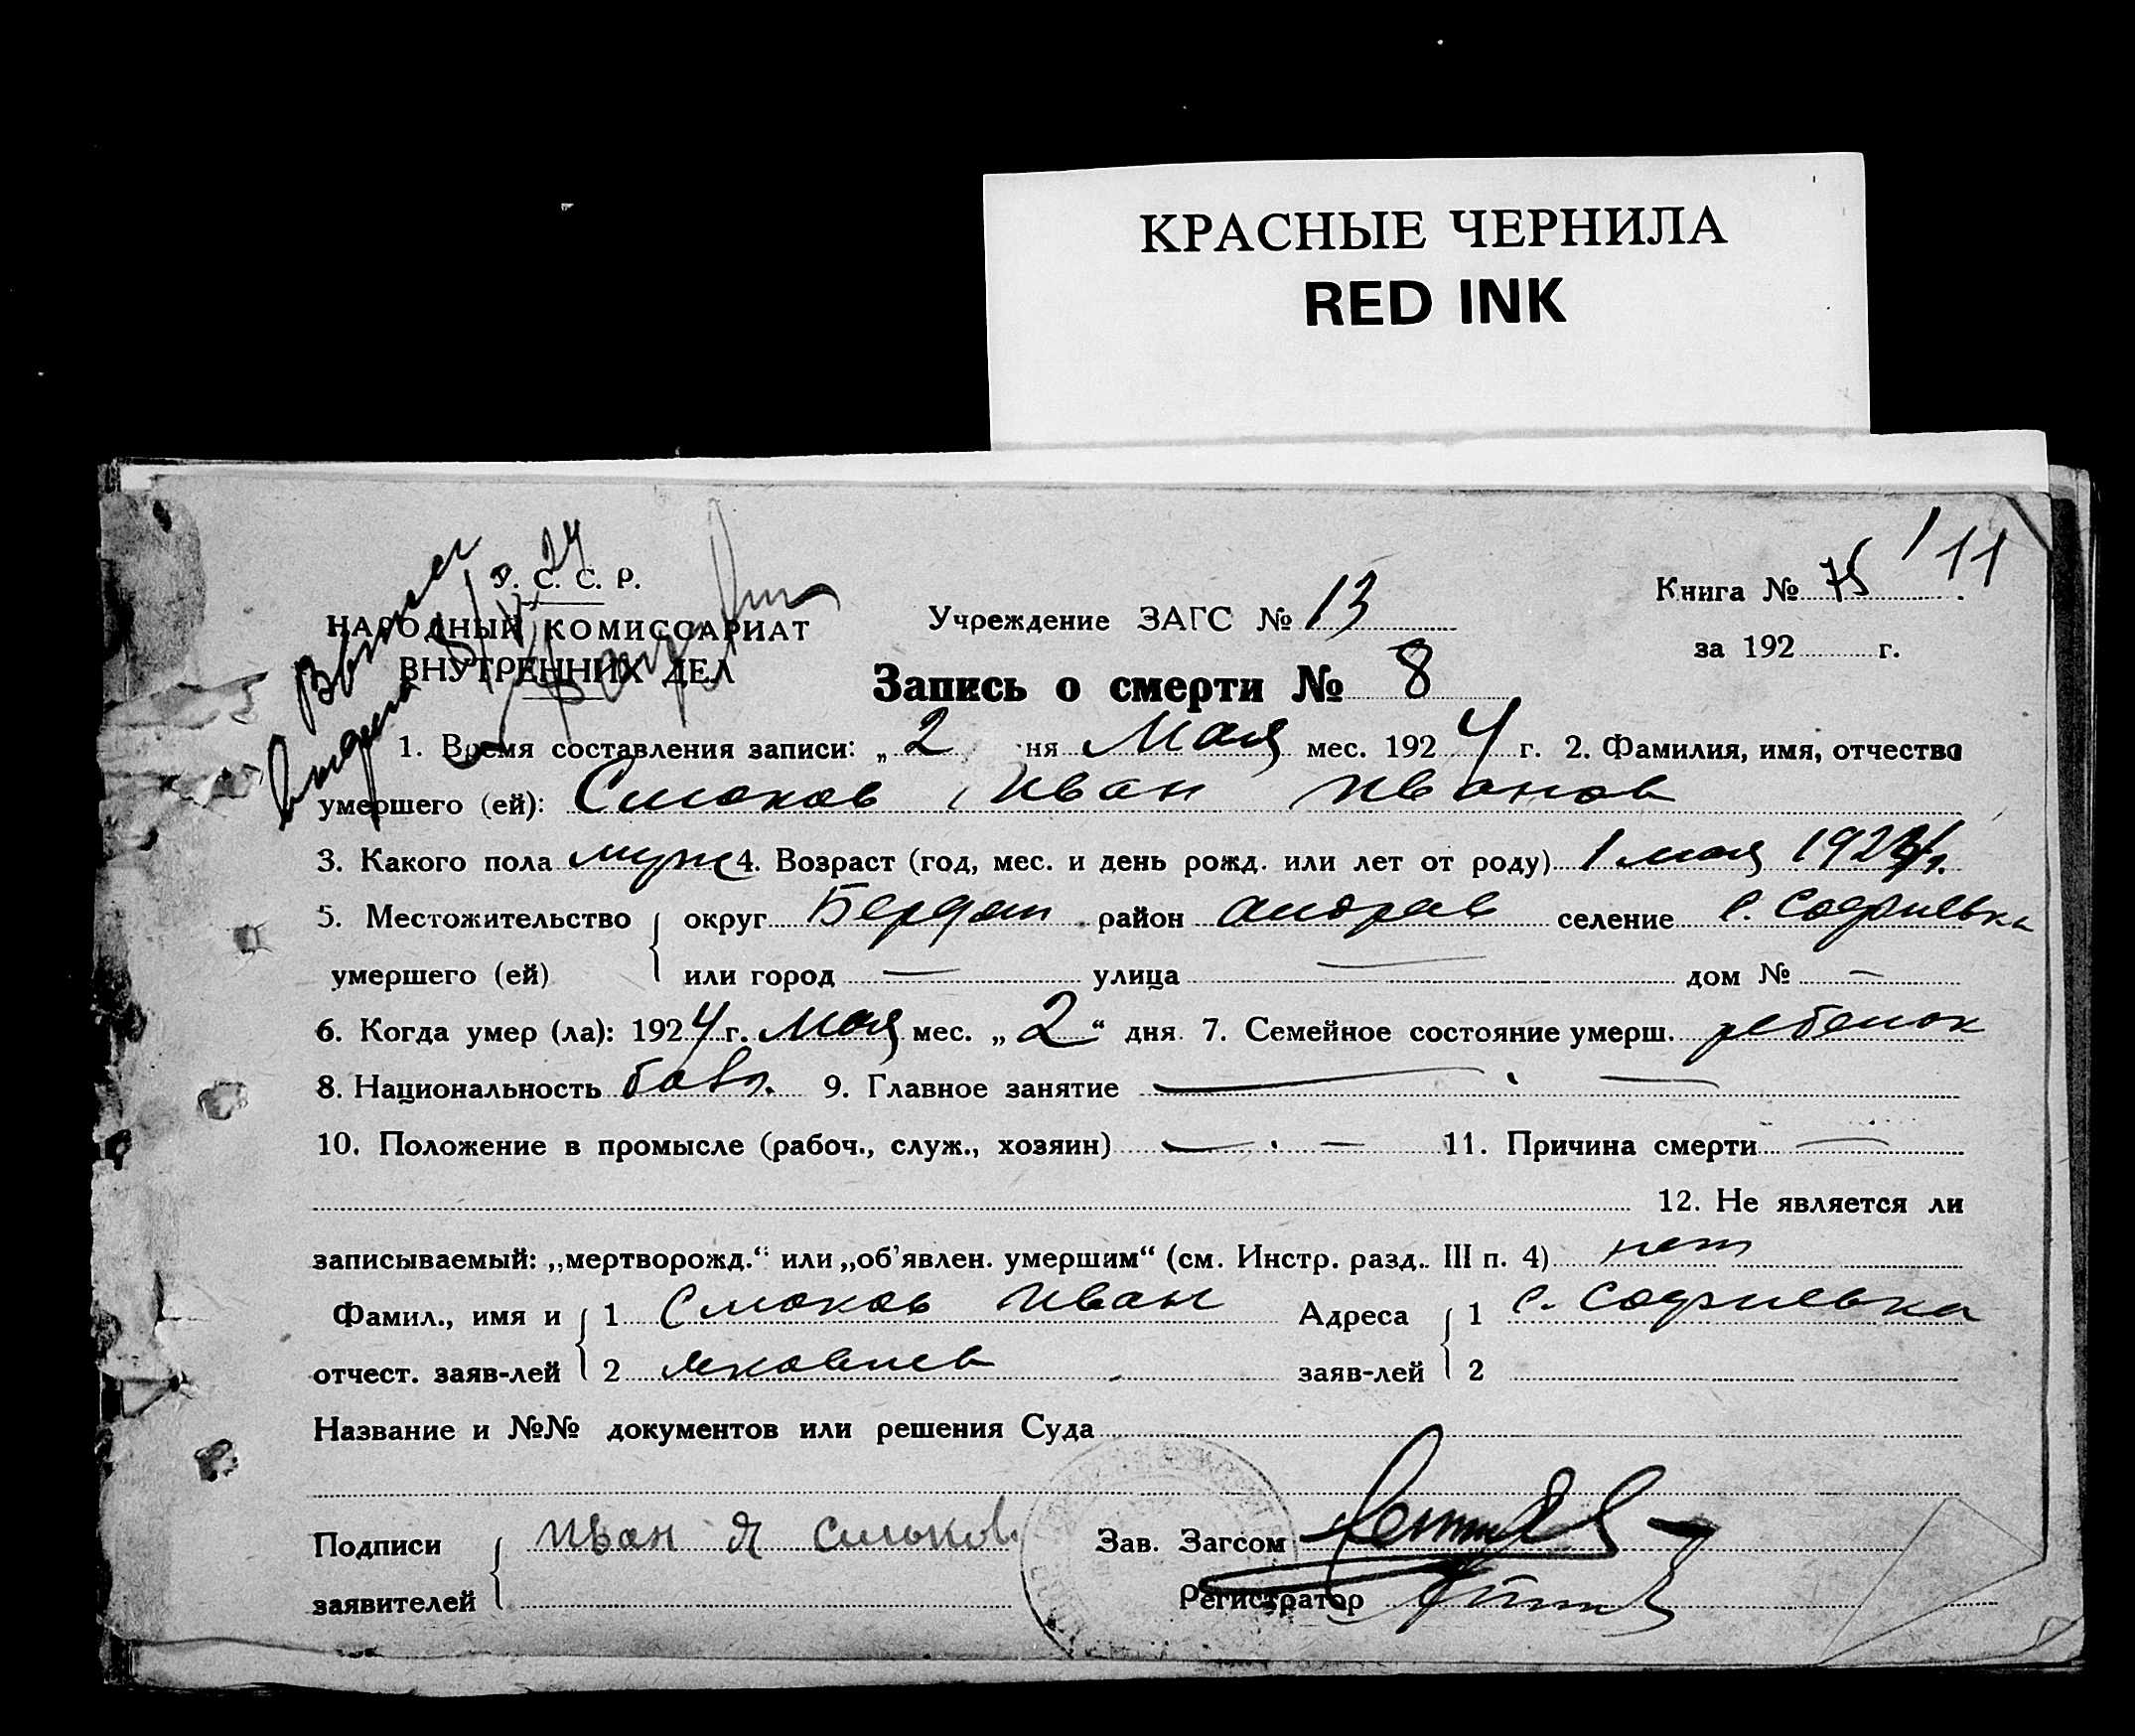 КРАСНЫЕ ЧЕРНИЛА
RED INK
У. С. С. Р.
НАРОДНЫЙ КОМИССАРИАТ
ВНУТРЕННИХ ДЕЛ
Учреждение ЗАГС № 13
Книга № 75
111
за 192 г.
Запись о смерти № 8
1. Время составления записи: „ 2 ня Мая мес. 192 4 г. 2. Фамилия, имя, отчество
умершего (ей): Смоков Иван Иванов
3. Какого пола муж 4. Возраст (год, мес. и день рожд. или лет от роду) 1 мая 1924 г.
5. Местожительство округ Бердян район Андрев селение с. Софиевка
умершего (ей) или город — улица — дом № —
6. Когда умер (ла): 192 4 г. Мая мес. „ 2 “ дня. 7. Семейное состояние умерш. ребенок
8. Национальность болг. 9. Главное занятие —
10. Положение в промысле (рабоч., служ., хозяин) — 11. Причина смерти —
12. Не является ли
записываемый: „мертворожд.“ или „об’явлен. умершим“ (см. Инстр. разд. III п. 4) нет
Фамил., имя и 1 Смоков Иван Адреса 1 с. Софиевка
отчест. заяв-лей 2 Яковлев заяв-лей 2
Название и №№ документов или решения Суда
Подписи Иван Я Смоков Зав. Загсом
заявителей Регистратор